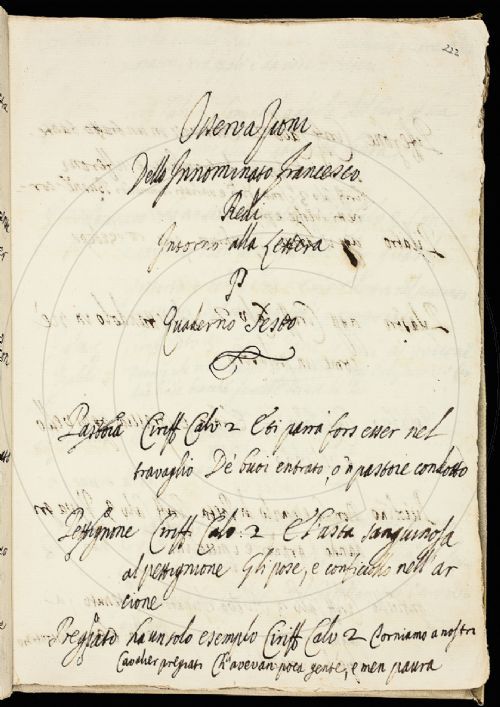 222
Osservazioni
Dello Innominato Francesco
Redi
Intorno alla Lettera
P
Quaderno Sesto
Pastoia Ciriff Calv 2 E ti parrà fors esser nel
travaglio De buoi entrato, o 'n pastoie condotto
Pettignone Ciriff. Calv. 2 E l'asta sanguinosa
al pettignione Gli pose, e conficcollo nell' ar
cione
Pregiato ha un solo esemplo Ciriff Calv 2 Torniamo a nostri
Cavalier pregiati Ch' avevan poca gente, e men paura